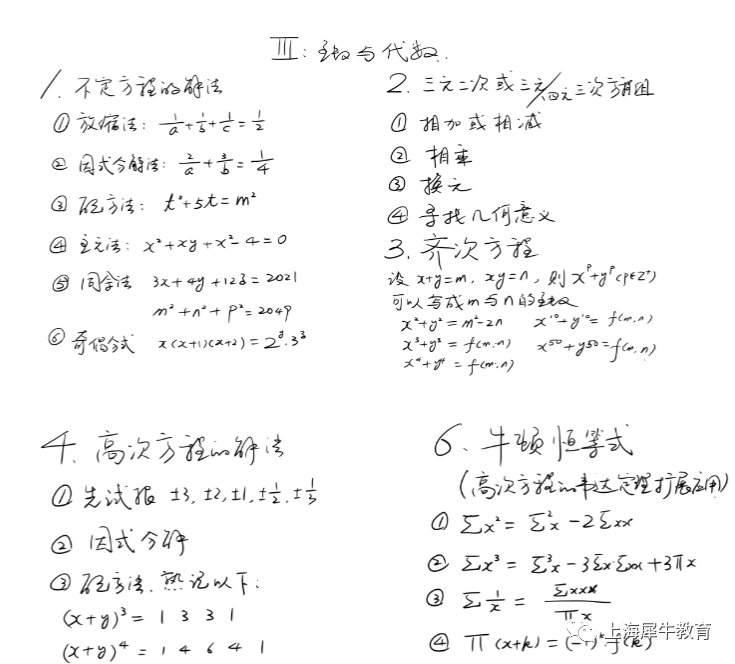 III: 数与代数.
1. 不定方程的解法
① 放缩法: 1/a + 1/b + 1/c = 1/2
② 因式分解法: 2/a + 3/b = 1/4
③ 配方法: t²+5t=m²
④ 主元法: x²+xy+x²-4=0
⑤ 同余法 3x+4y+12z=2021
m²+n²+p²=2049
⑥ 奇偶分式 x(x+1)(x+2)=2^y·3^z
2. 三元二次或三元/四元三次方程组
① 相加或相减
② 相乘
③ 换元
④ 寻找几何意义
3. 齐次方程
设 x+y=m, xy=n, 则 x^p+y^p (p∈Z⁺)
可以写成m与n的函数
x²+y²=m²-2n x¹⁰+y¹⁰=f(m,n)
x³+y³=f(m,n) x⁵⁰+y⁵⁰=f(m,n)
x⁴+y⁴=f(m,n)
4. 高次方程的解法
① 先试根 ±3, ±2, ±1, ±1/2, ±1/3
② 因式分解
③ 配方法. 熟记以下:
(x+y)³ = 1 3 3 1
(x+y)⁴ = 1 4 6 4 1
6. 牛顿恒等式
(高次方程的韦达定理扩展应用)
① Σx² = Σ²x - 2Σxx
② Σx³ = Σ³x - 3Σx·Σxx + 3πx
③ Σ 1/x = Σxxx / πx
④ π(x+k) = (-1)^k f(k)
上海犀牛教育